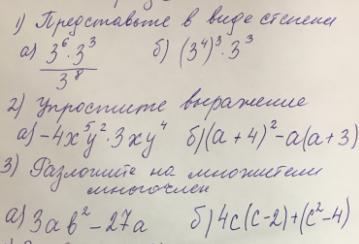 1) Представьте в виде степени
а) 3⁶·3³ / 3⁸ б) (3⁴)³·3³
2) Упростите выражение
а) -4x⁵y²·3xy⁴ б) (a+4)²-a(a+3)
3) Разложите на множители
многочлен
а) 3ab²-27a б) 4c(c-2)+(c²-4)